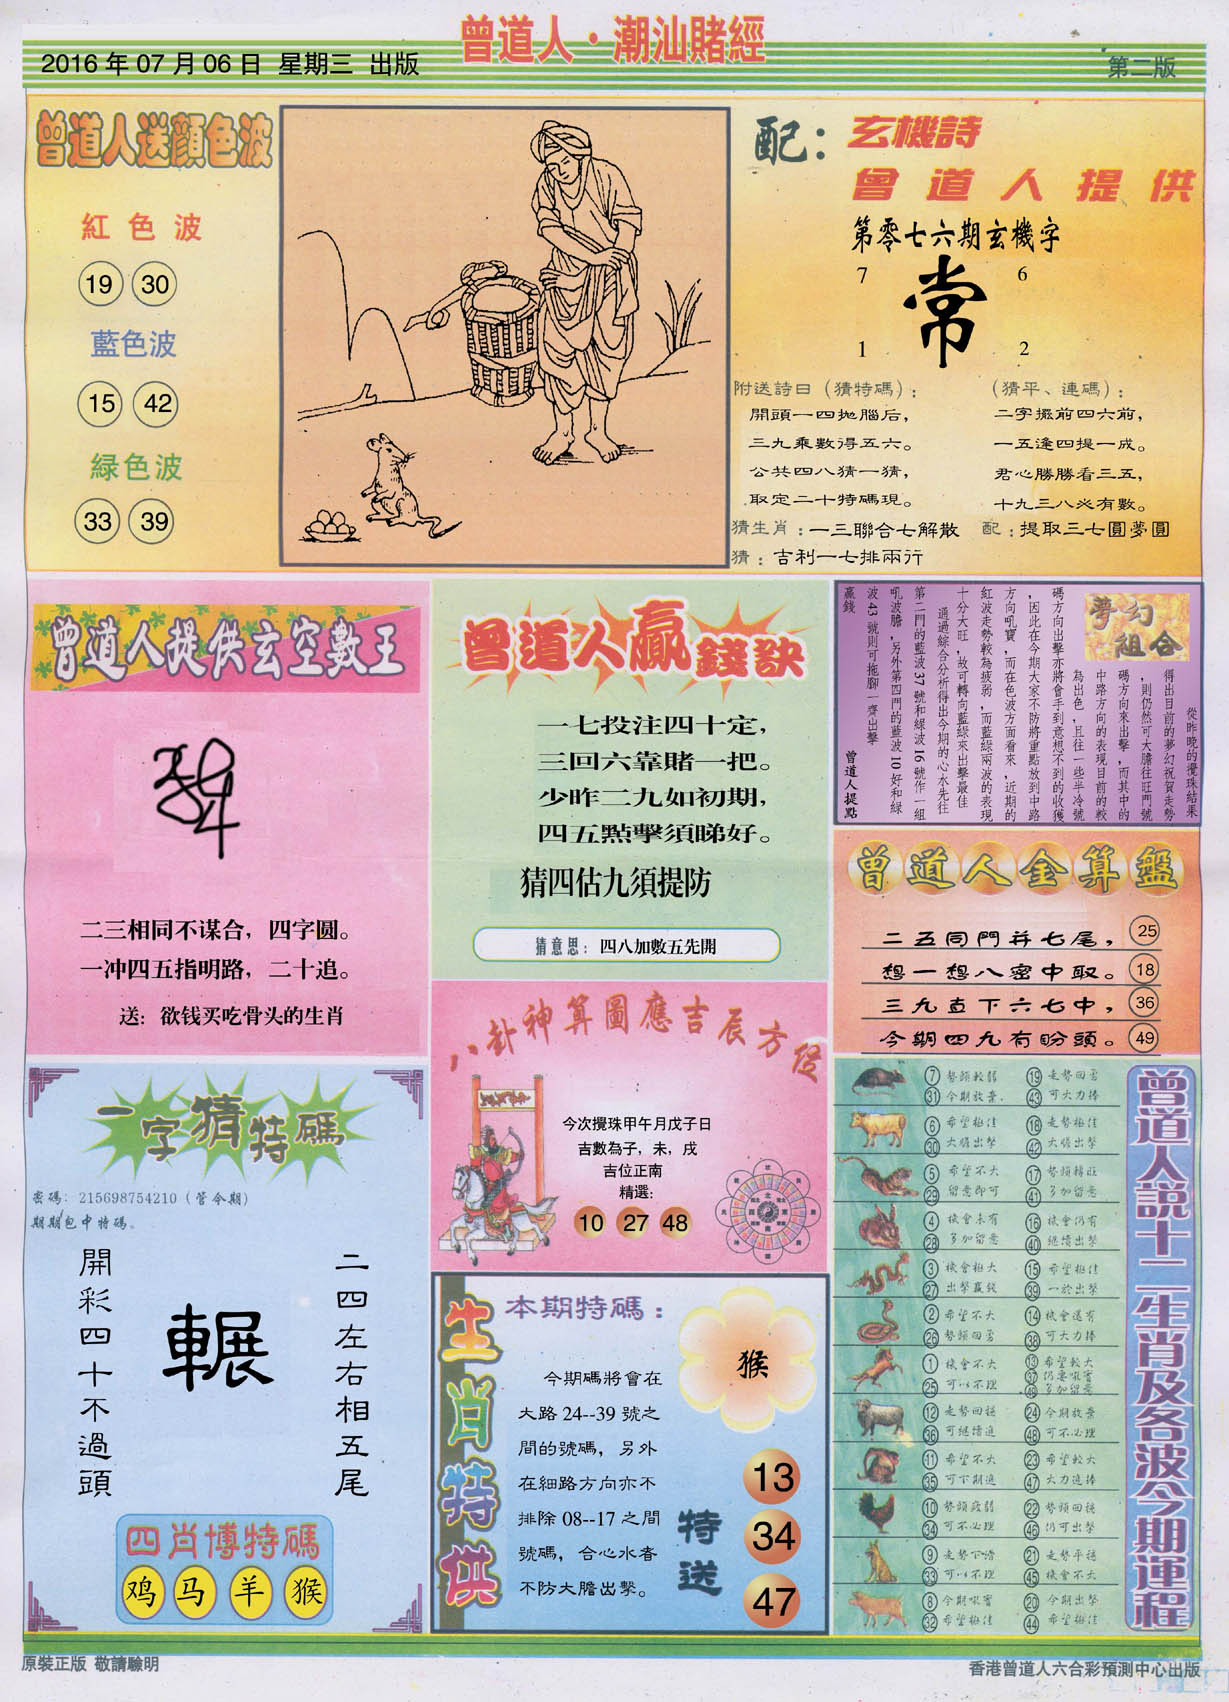 曾道人·潮汕賭經
2016年07月06日 星期三 出版
第二版
曾道人送顏色波
紅色波
19 30
藍色波
15 42
緑色波
33 39
配：玄機詩
曾道人提供
第零七六期玄機字
7 6
常
1 2
附送詩曰（猜特碼）：
開頭一四拋腦后，
三九乘數得五六。
公共四八猜一猜，
取定二十特碼現。
（猜平、連碼）：
二字擺前四六前，
一五逢四提一成。
君心勝勝看三五，
十九三八必有數。
猜生肖：一三聯合七解散
配：提取三七圓夢圓
猜：吉利一七排兩行
曾道人提供玄空數王
二三相同不谋合，四字圆。
一冲四五指明路，二十追。
送：欲钱买吃骨头的生肖
曾道人贏錢訣
一七投注四十定，
三回六靠賭一把。
少昨二九如初期，
四五點擊須睇好。
猜四估九須提防
猜意思：四八加數五先開
夢幻組合
從昨晚的攪珠結果
得出目前的夢幻祝賀走勢
，則仍然可大膽往旺門號
碼方向來出擊，而其中的
中路方向的表現目前的較
為出色，且往一些半冷號
碼方向出擊亦將會手到意想不到的收獲
，因此在今期大家不防將重點放到中路
方向吼寶，而在色波方面看來，近期的
紅波走勢較為疲弱，而藍綠兩波的表現
十分大旺，故可轉向藍綠來出擊最佳
通過綜合分析得出今期的心水先往
第二門的藍波37號和綠波16號作一組
吼波膽，另外第四門的藍波10好和綠
波43號則可拖腳一齊出擊
贏錢
曾道人提點
曾道人金算盤
二五同門并七尾， 25
想一想八密中取。 18
三九直下六七中， 36
今期四九有盼頭。 49
八卦神算圖應吉辰方位
今次攪珠甲午月戊子日
吉數為子，未，戌
吉位正南
精選：
10 27 48
一字猜特碼
密碼：215698754210（管令期）
期期包中特碼。
二四左右相五尾
輾
開彩四十不過頭
四肖博特碼
鸡 马 羊 猴
生肖特供
本期特碼：
猴
今期碼將會在
大路24--39號之
間的號碼，另外
在細路方向亦不
排除08--17之間
號碼，合心水者
不防大膽出擊。
特送
13
34
47
曾道人説十二生肖及各波今期運程
7 勢頭較弱 19 走勢回勇
31 今期放棄. 43 可大力捧
6 希望極佳 18 走勢極佳
30 大膽出擊 42 大膽出擊
5 希望不大 17 勢頭轉旺
29 留意即可 41 多加留意
4 機會未有 16 機會仍有
28 多加留意 40 繼續出擊
3 機會極大 15 希望極佳
27 出擊贏錢 39 一於出擊
2 希望不大 14 機會還有
26 勢頭回勇 38 可大力捧
1 機會不大 13 希望較大
25 可以不理 37 仍要吸實
49 多加留意
12 走勢回穩 24 今期放棄
36 可繼續追 48 可不必理
11 希望不大 23 希望較大
35 可下期追 47 大力追捧
10 勢頭疲弱 22 勢頭回穩
34 可不必理 46 仍可出擊
9 走勢下滑 21 走勢平穩
33 可以不理 45 機會不大
8 今期吸實 20 今期出擊
32 希望極佳 44 希望極佳
原裝正版 敬請驗明
香港曾道人六合彩預測中心出版